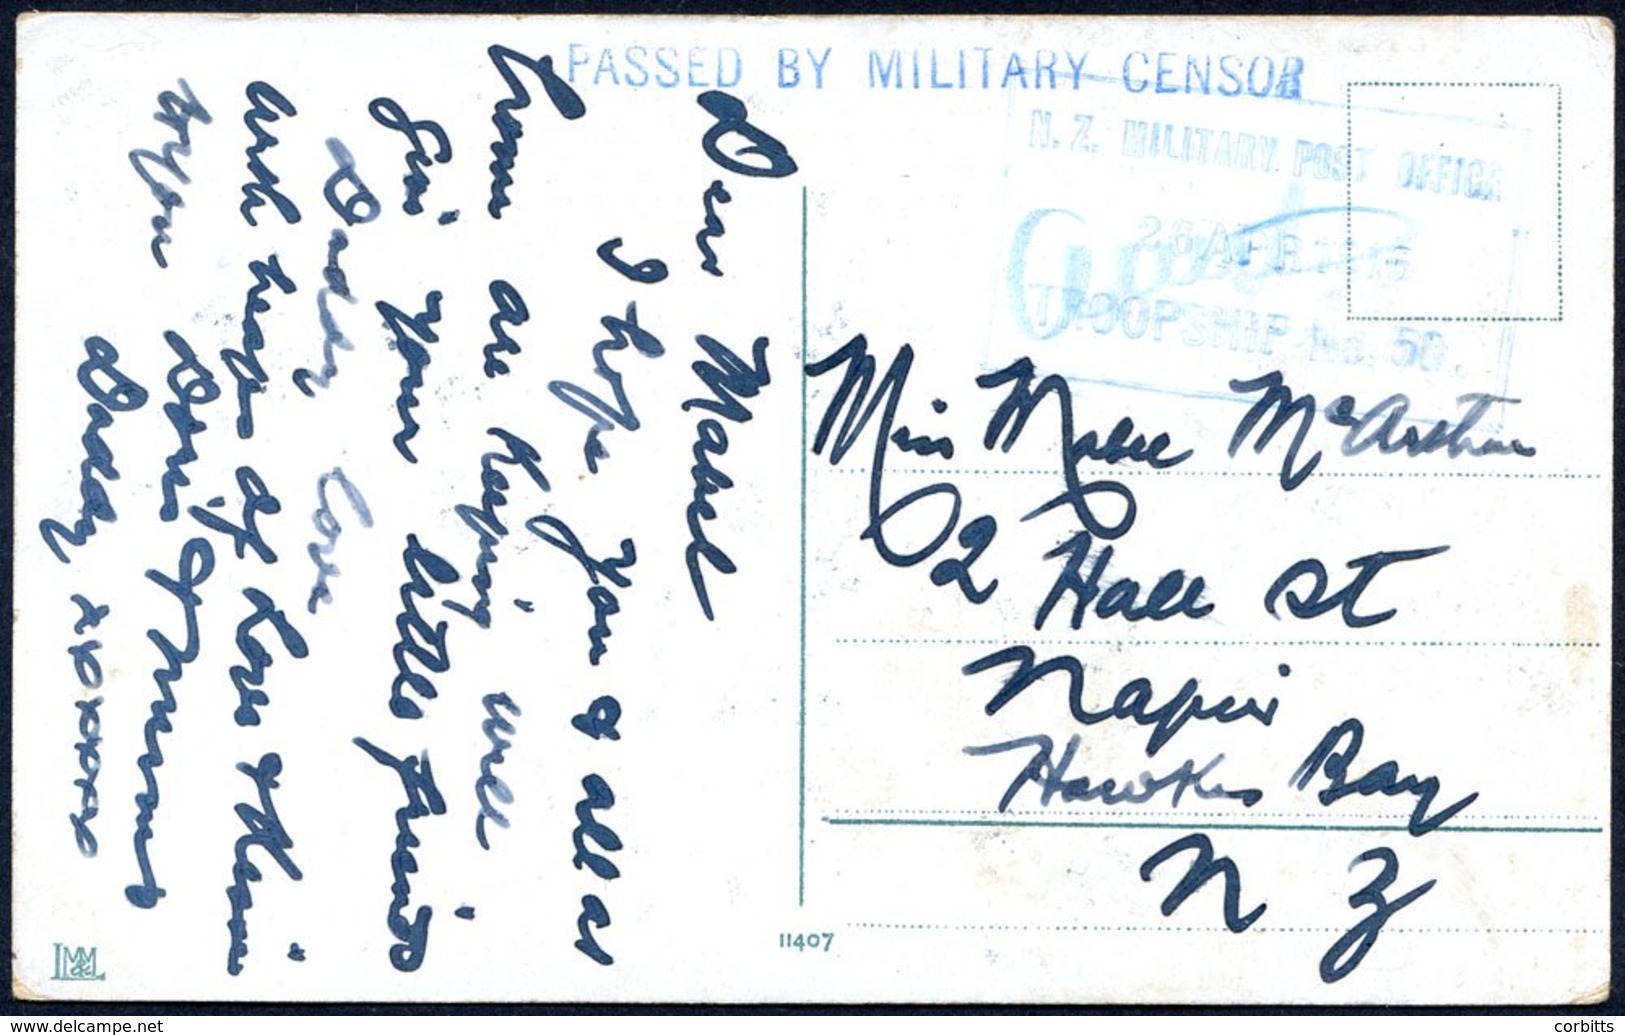 PASSED BY MILITARY CENSOR
N. Z. MILITARY POST OFFICE
26 APR 1916
TROOPSHIP No. 50.
Dear Mabel
I hope you & all at
home are Keeping well
Give your little friends
Daddy Love
with heaps of Love & Kisses
to you Doris & Mum
Daddy xoxoxox
Miss Mabel McArthur
2 Hall St
Napier
Hawkes Bay
N Z
11407
LM&M
delcampe.net
corbitts